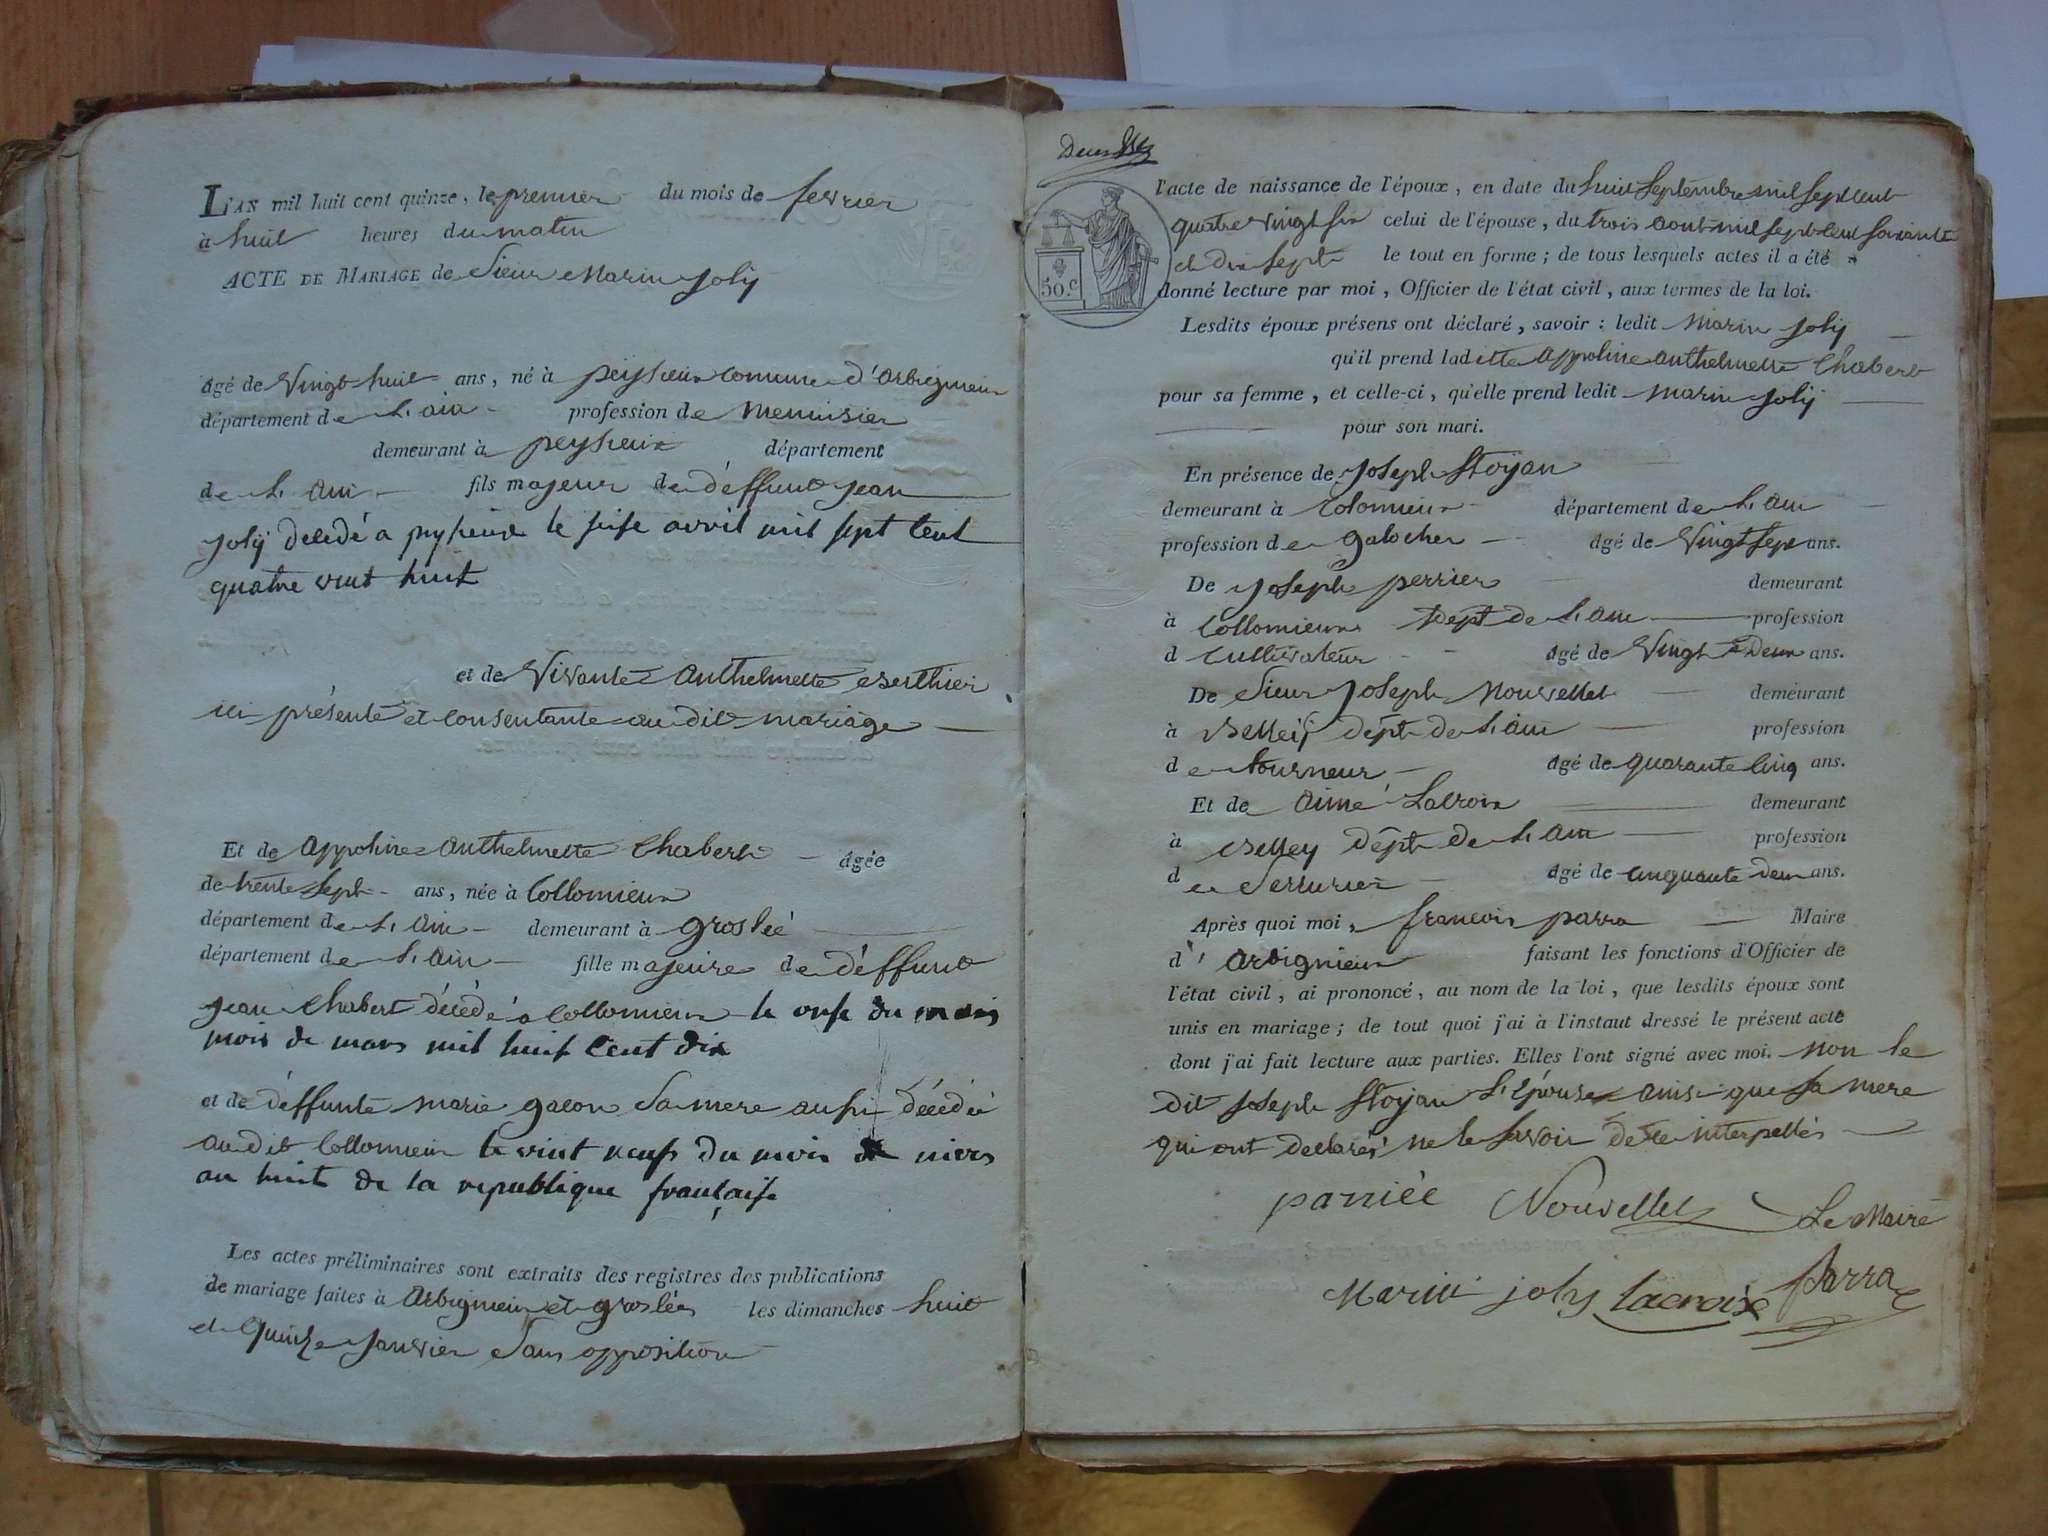 L'AN mil huit cent quinze, le premier du mois de fevrier
à huit heures du matin
ACTE DE MARIAGE de Sieur Marin Joly
âgé de Vingt huit ans, né à peysieux comune d'Arbignieux
département de L'ain profession de Menuisier
demeurant à peysieux département
de L'ain fils majeur de déffunt jean
Joly décédé a le seise avril mil sept cent
quatre vint huit
et de Vivante Anthelmette Berthier
ici présente et Consentante au dit mariage
Et de Appoline Anthelmette Chabert âgée
de trente sept ans, née à Collomieux
département de L'ain demeurant à groslée
département de L'ain fille majeure de déffunt
jean Chabert décédé à Collomieux le onse du
mois de mars mil huit Cent dix
et de déffunte marie gacon Sa mere aussi décédée
au dit Collomieux le vint neuf du mois de nivos
an huit de la republique française
Les actes préliminaires sont extraits des registres des publications
de mariage faites à Arbignieux et groslée les dimanches huit
et quinze Janvier Sans opposition
50.c
l'acte de naissance de l'époux, en date du huit Septembre mil Sept cent
quatre vingt six celui de l'épouse, du trois aout mil Sept Cent soixante
et dix Sept le tout en forme; de tous lesquels actes il a été
donné lecture par moi, Officier de l'état civil, aux termes de la loi.
Lesdits époux présens ont déclaré, savoir: ledit Marin Joly
qu'il prend ladite Appoline Anthelmette Chabert
pour sa femme, et celle-ci, qu'elle prend ledit Marin Joly
pour son mari.
En présence de Joseph Stoyan
demeurant à Colomieux département de L'ain
profession de galocher âgé de Vingt Sept ans.
De Joseph perrier demeurant
à Collomieux Dept de L'ain profession
d Cultivateur âgé de Vingt Deux ans.
De Sieur Joseph Nouvellet demeurant
à Belley Dépt de L'ain profession
de tourneur âgé de quarante cinq ans.
Et de Aimé Lacroix demeurant
à Belley Dépt de L'ain profession
de Serrurier âgé de Cinquante deux ans.
Après quoi moi, françois parra Maire
d' Arbignieux faisant les fonctions d'Officier de
l'état civil, ai prononcé, au nom de la loi, que lesdits époux sont
unis en mariage; de tout quoi j'ai à l'instant dressé le présent acte
dont j'ai fait lecture aux parties. Elles l'ont signé avec moi. non le
dit Joseph Stoyan L'épouse ainsi que sa mere
qui ont declarés ne le savoir de ce interpellés
Nouvellet Le Maire
Marin joly Lacroix Parra